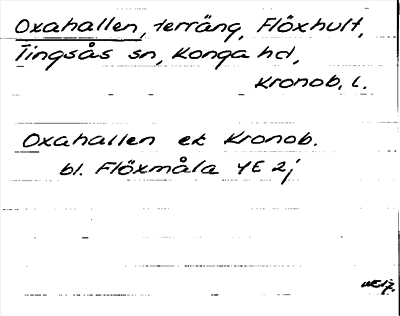 Oxahallen, terräng, Flöxhult,
Tingsås sn, Konga hd,
Kronob. l.
Oxahallen ek Kronob.
bl. Flöxmåla 4E 2j